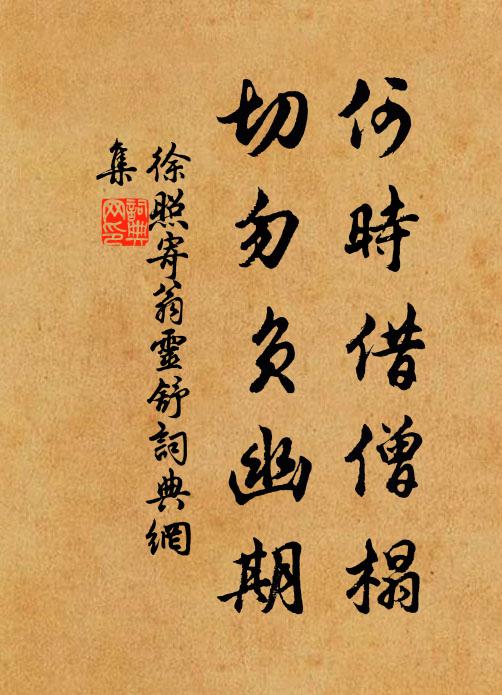 何時借僧榻
切勿負幽期
徐照寄翁靈舒詞典網
集
詞典
网印